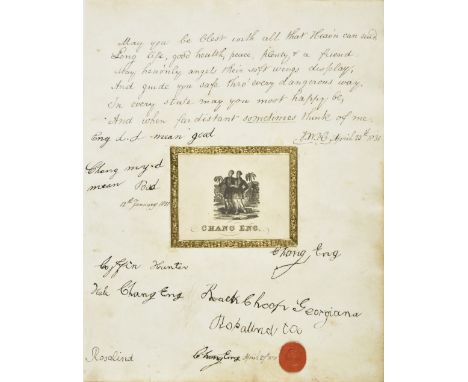 May you be blest with all that Heav'n can send
Long life, good health, peace, plenty & a friend
May heavenly angels their soft wings display,
And guide you safe thro' every dangerous way,
In every state may you most happy be,
And when far distant sometimes think of me
Eng mean good
April
Chang
mean Bad
12th January
CHANG ENG.
Chang Eng
Coffin Hunter
Chang Eng
Georgiana
Rosalind
Rosalind
Chang Eng